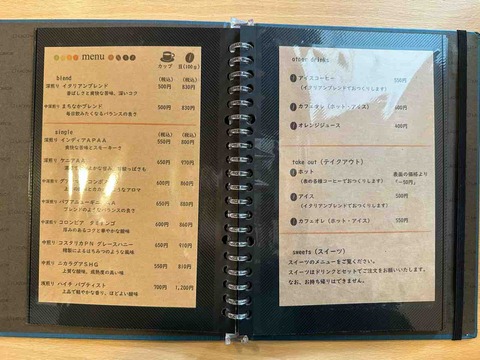 menu
カップ 豆(100g)
blend (税込) (税込)
深煎り イタリアンブレンド 500円 830円
香ばしさと爽快な苦味、深いコク
中煎り まちなかブレンド 500円 830円
毎日飲みたくなるバランスの良さ
single (税込) (税込)
深煎り インディアAPAA 550円 880円
爽快な苦味とスモーキーク
深煎り ケニアAA 650円 970円
600円 860円
中深煎り パプアニューギニア 650円 880円
ブレンドのようなバランスの良さ
中煎り コロンビア 600円 900円
厚みのあるコクと華やかな酸味
中煎り コスタリカPN グレースハニー 650円 910円
精製によるはちみつのような風味
中煎り ニカラグアSHG 550円 810円
上質な酸味、成熟度の高い味
浅煎り ハイチ バプティスト 700円 1,200円
上品で軽やかな香り、ほどよい酸味
other drinks
アイスコーヒー 550円
(イタリアンブレンドでおつくりします)
カフェオレ(ホット・アイス) 600円
オレンジジュース 400円
Take out (テイクアウト)
ホット 表面の価格より
(表の各種コーヒーでおつくりします) 「-50円」
アイス 500円
(イタリアンブレンドでおつくりします)
カフェオレ(ホット・アイス) 550円
sweets (スイーツ)
スイーツのメニューをご覧ください。
スイーツはドリンクとセットでご注文をお願いいたします。
なお、お持ち帰りはできません。